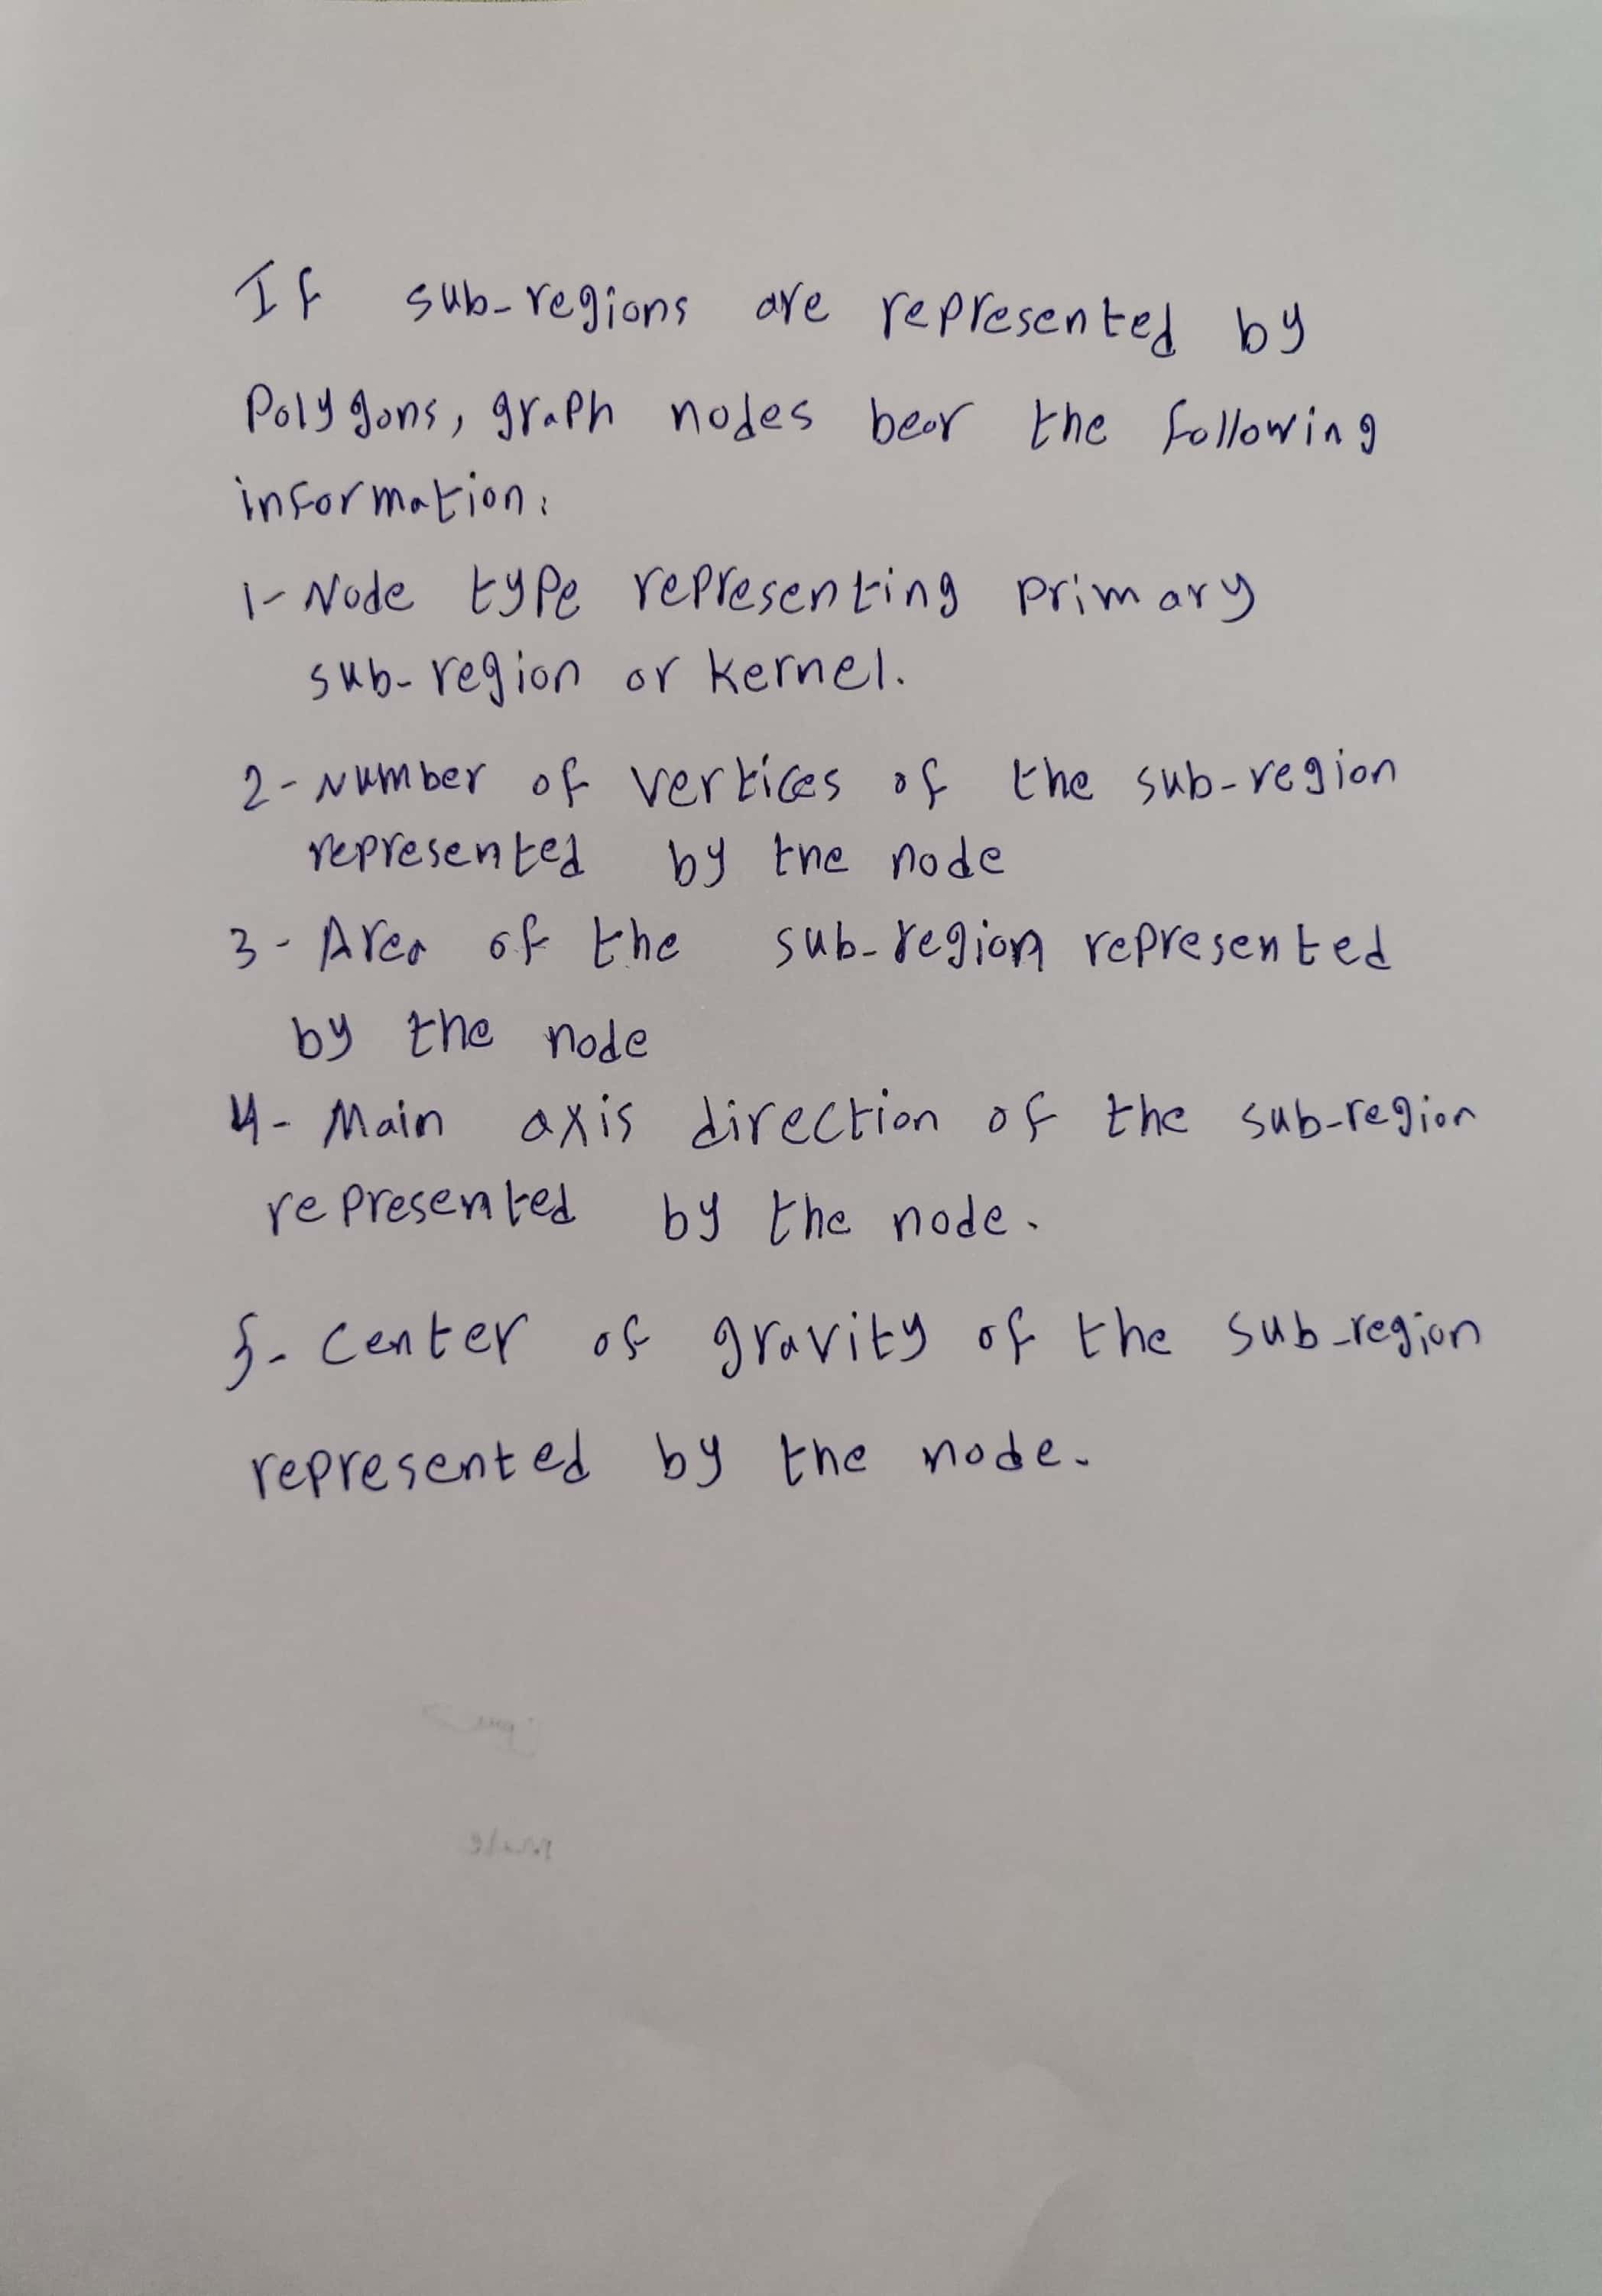 If sub-regions are represented by
Polygons, graph nodes bear the following
information:
1- Node type representing primary
sub-region or kernel.
2- Number of vertices of the sub-region
represented by the node
3- Area of the sub-region represented
by the node
4- Main axis direction of the sub-region
represented by the node.
5- Center of gravity of the sub-region
represented by the node.